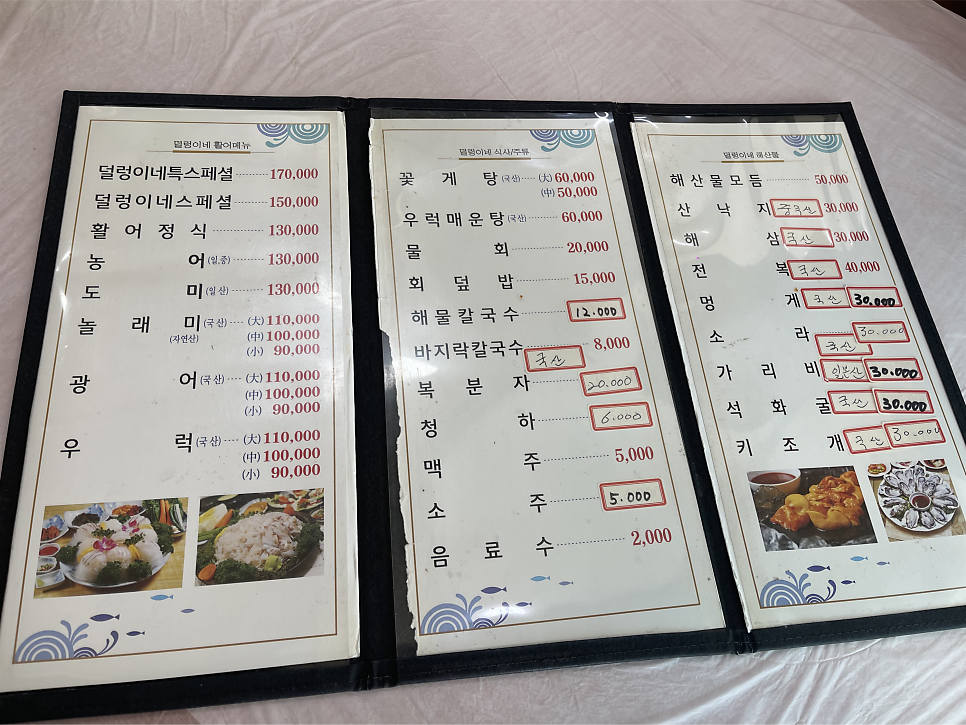 덜렁이네 활어메뉴
덜렁이네특스페셜 170,000
덜렁이네스페셜 150,000
활어정식 130,000
농어(일,중) 130,000
도미(일산) 130,000
놀래미(국산) (大) 110,000
(자연산) (中) 100,000
(小) 90,000
광어(국산) (大) 110,000
(中) 100,000
(小) 90,000
우럭(국산) (大) 110,000
(中) 100,000
(小) 90,000
덜렁이네 식사/주류
꽃게탕(국산) (大) 60,000
(中) 50,000
우럭매운탕(국산) 60,000
물회 20,000
회덮밥 15,000
해물칼국수 12.000
바지락칼국수 8,000
국산
복분자 20.000
청하 6.000
맥주 5,000
소주 5.000
음료수 2,000
덜렁이네 해산물
해산물모듬 50,000
산낙지 중국산 30,000
해삼 국산 30,000
전복 국산 40,000
멍게 국산 30.000
소라 국산 30.000
가리비 일본산 30.000
석화굴 국산 30.000
키조개 국산 30.000